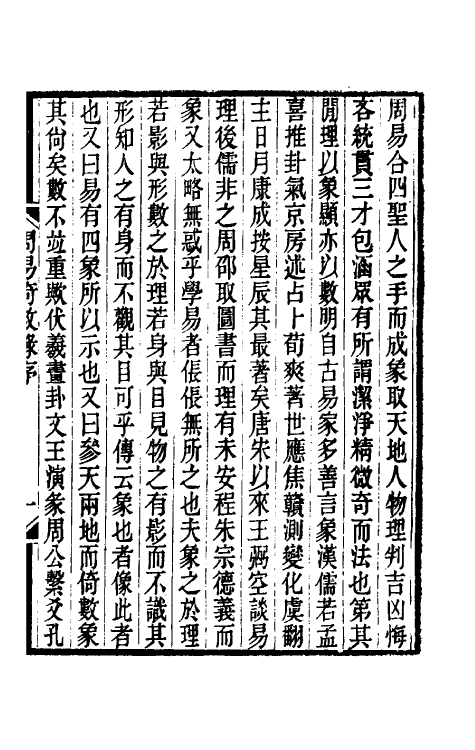 周易合四聖人之手而成象取天地人物理判吉凶悔
吝統貫三才包涵眾有所謂潔淨精微奇而法也第其
閒理以象顯亦以數明自古易家多善言象漢儒若孟
喜推卦氣京房述占卜荀爽著世應焦贛測變化虞翻
主日月康成按星辰其最著矣唐朱以來王弼空談易
理後儒非之周邵取圖書而理有未安程朱宗德義而
象又太略無惑乎學易者倀倀無所之也夫象之於理
若影與形數之於理若身與目見物之有影而不識其
形知人之有身而不觀其目可乎傳云象也者像此者
也又曰易有四象所以示也又曰參天兩地而倚數象
其尙矣數不竝重歟伏羲畫卦文王演彖周公繫爻孔
周易倚數錄序
一